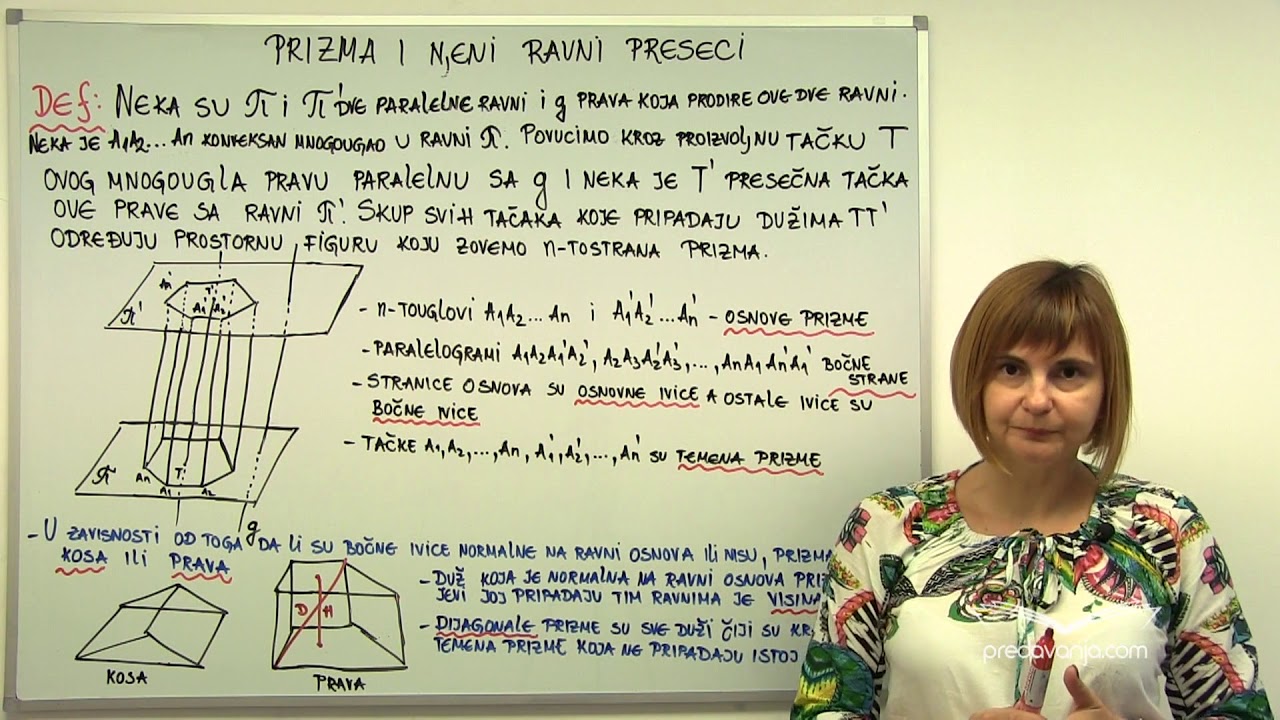 PRIZMA I NJENI RAVNI PRESECI
Def: NEKA SU π i π' DVE PARALELNE RAVNI i g PRAVA KOJA PRODIRE OVE DVE RAVNI.
NEKA JE A₁A₂...An KONVEKSAN MNOGOUGAO U RAVNI π. POVUCIMO KROZ PROIZVOLJNU TAČKU T
OVOG MNOGOUGLA PRAVU PARALELNU SA g I NEKA JE T' PRESEČNA TAČKA
OVE PRAVE SA RAVNI π'. SKUP SVIH TAČAKA KOJE PRIPADAJU DUŽIMA TT'
ODREĐUJU PROSTORNU FIGURU KOJU ZOVEMO n-TOSTRANA PRIZMA.
An' T' A₁' A₂'
π'
An T
π A₁ A₂
g
- n-TOUGLOVI A₁A₂...An i A₁'A₂'...An' - OSNOVE PRIZME
- PARALELOGRAMI A₁A₂A₁'A₂', A₂A₃A₂'A₃',..., AnA₁An'A₁' BOČNE
STRANE
- STRANICE OSNOVA SU OSNOVNE IVICE A OSTALE IVICE SU
BOČNE IVICE
- TAČKE A₁,A₂,...,An, A₁',A₂',...,An' SU TEMENA PRIZME
- U ZAVISNOSTI OD TOGA DA LI SU BOČNE IVICE NORMALNE NA RAVNI OSNOVA ILI NISU, PRIZMA
KOSA ILI PRAVA
KOSA
D H
PRAVA
- DUŽ KOJA JE NORMALNA NA RAVNI OSNOVA
JEVI JOJ PRIPADAJU TIM RAVNIMA JE VISINA
- DIJAGONALE PRIZME SU SVE DUŽI ČIJI SU
TEMENA PRIZME KOJA NE PRIPADAJU ISTOJ
predavanja.com